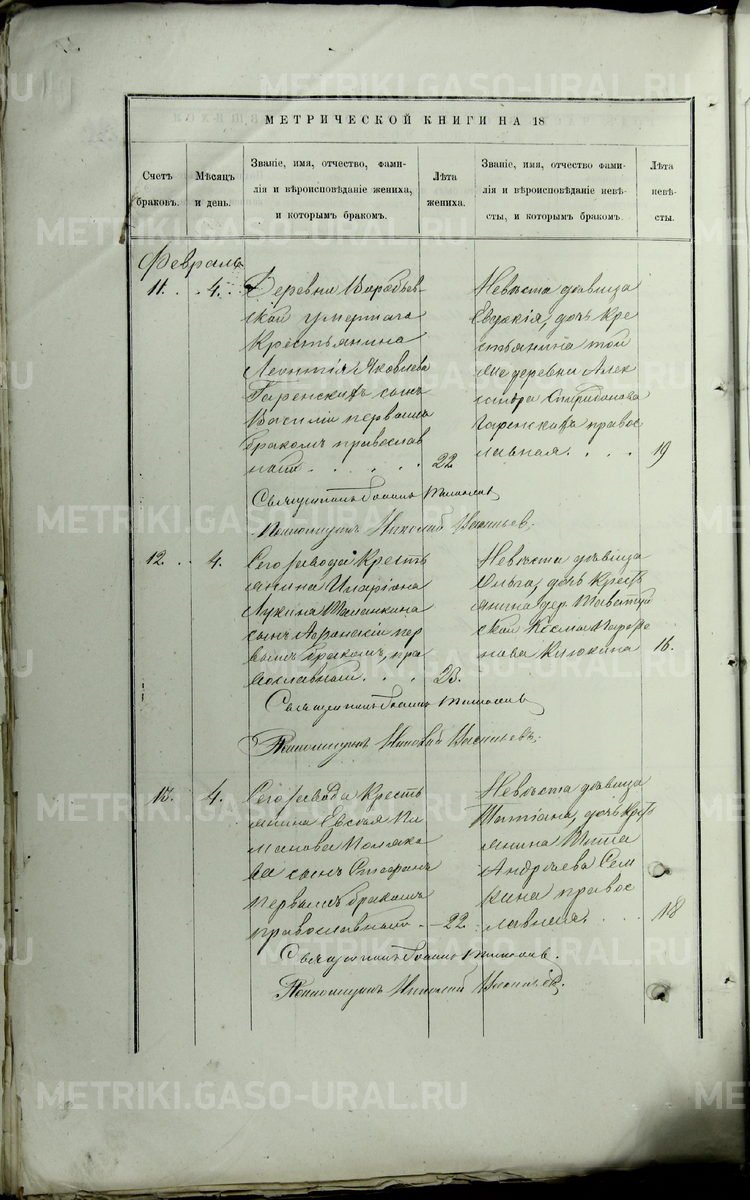 МЕТРИЧЕСКОЙ КНИГИ НА 18
Счетъ
браковъ.
Мѣсяцъ
и день.
Званіе, имя, отчество, фами-
лія и вѣроисповѣданіе жениха,
и которымъ бракомъ.
Лѣта
жениха.
Званіе, имя, отчество фами-
лія и вѣроисповѣданіе невѣ-
сты, и которымъ бракомъ.
Лѣта
невѣ-
сты.
Февраль
11. . 4. .
Деревни Воробьев-
ской умершаго
Крестьянина
Леонтія Яковлева
Гаренскихъ сынъ
Василій первымъ
бракомъ православ
ный . . . . . 22
Невѣста дѣвица
Евдокія, дочь Кре
стьянина той
же деревни Алек
сандра Спиридонова
Гаренскихъ правос
лавная. . . . 19
Священникъ Іоаннъ
Псаломщикъ Николай
12. . 4.
Сего завода Кресть
янина Иларіона
Лукина
сынъ пер
вымъ бракомъ, пра
вославный. . . 23.
Невѣста дѣвица
Ольга, дочь Крест
янина дер. Таватуй
ской Космы
Клюкина 16.
Священникъ Іоаннъ
Псаломщикъ Николай
13. 4.
Сего завода Кресть
янина Евсевія
сынъ Стефанъ
первымъ бракомъ
православный . 22
Невѣста дѣвица
Татіана, дочь Крест
янина Тита
Андреева Сем
кина правос
лавная. . . . 18
Священникъ Іоаннъ
Псаломщикъ Николай
METRIKI.GASO-URAL.RU